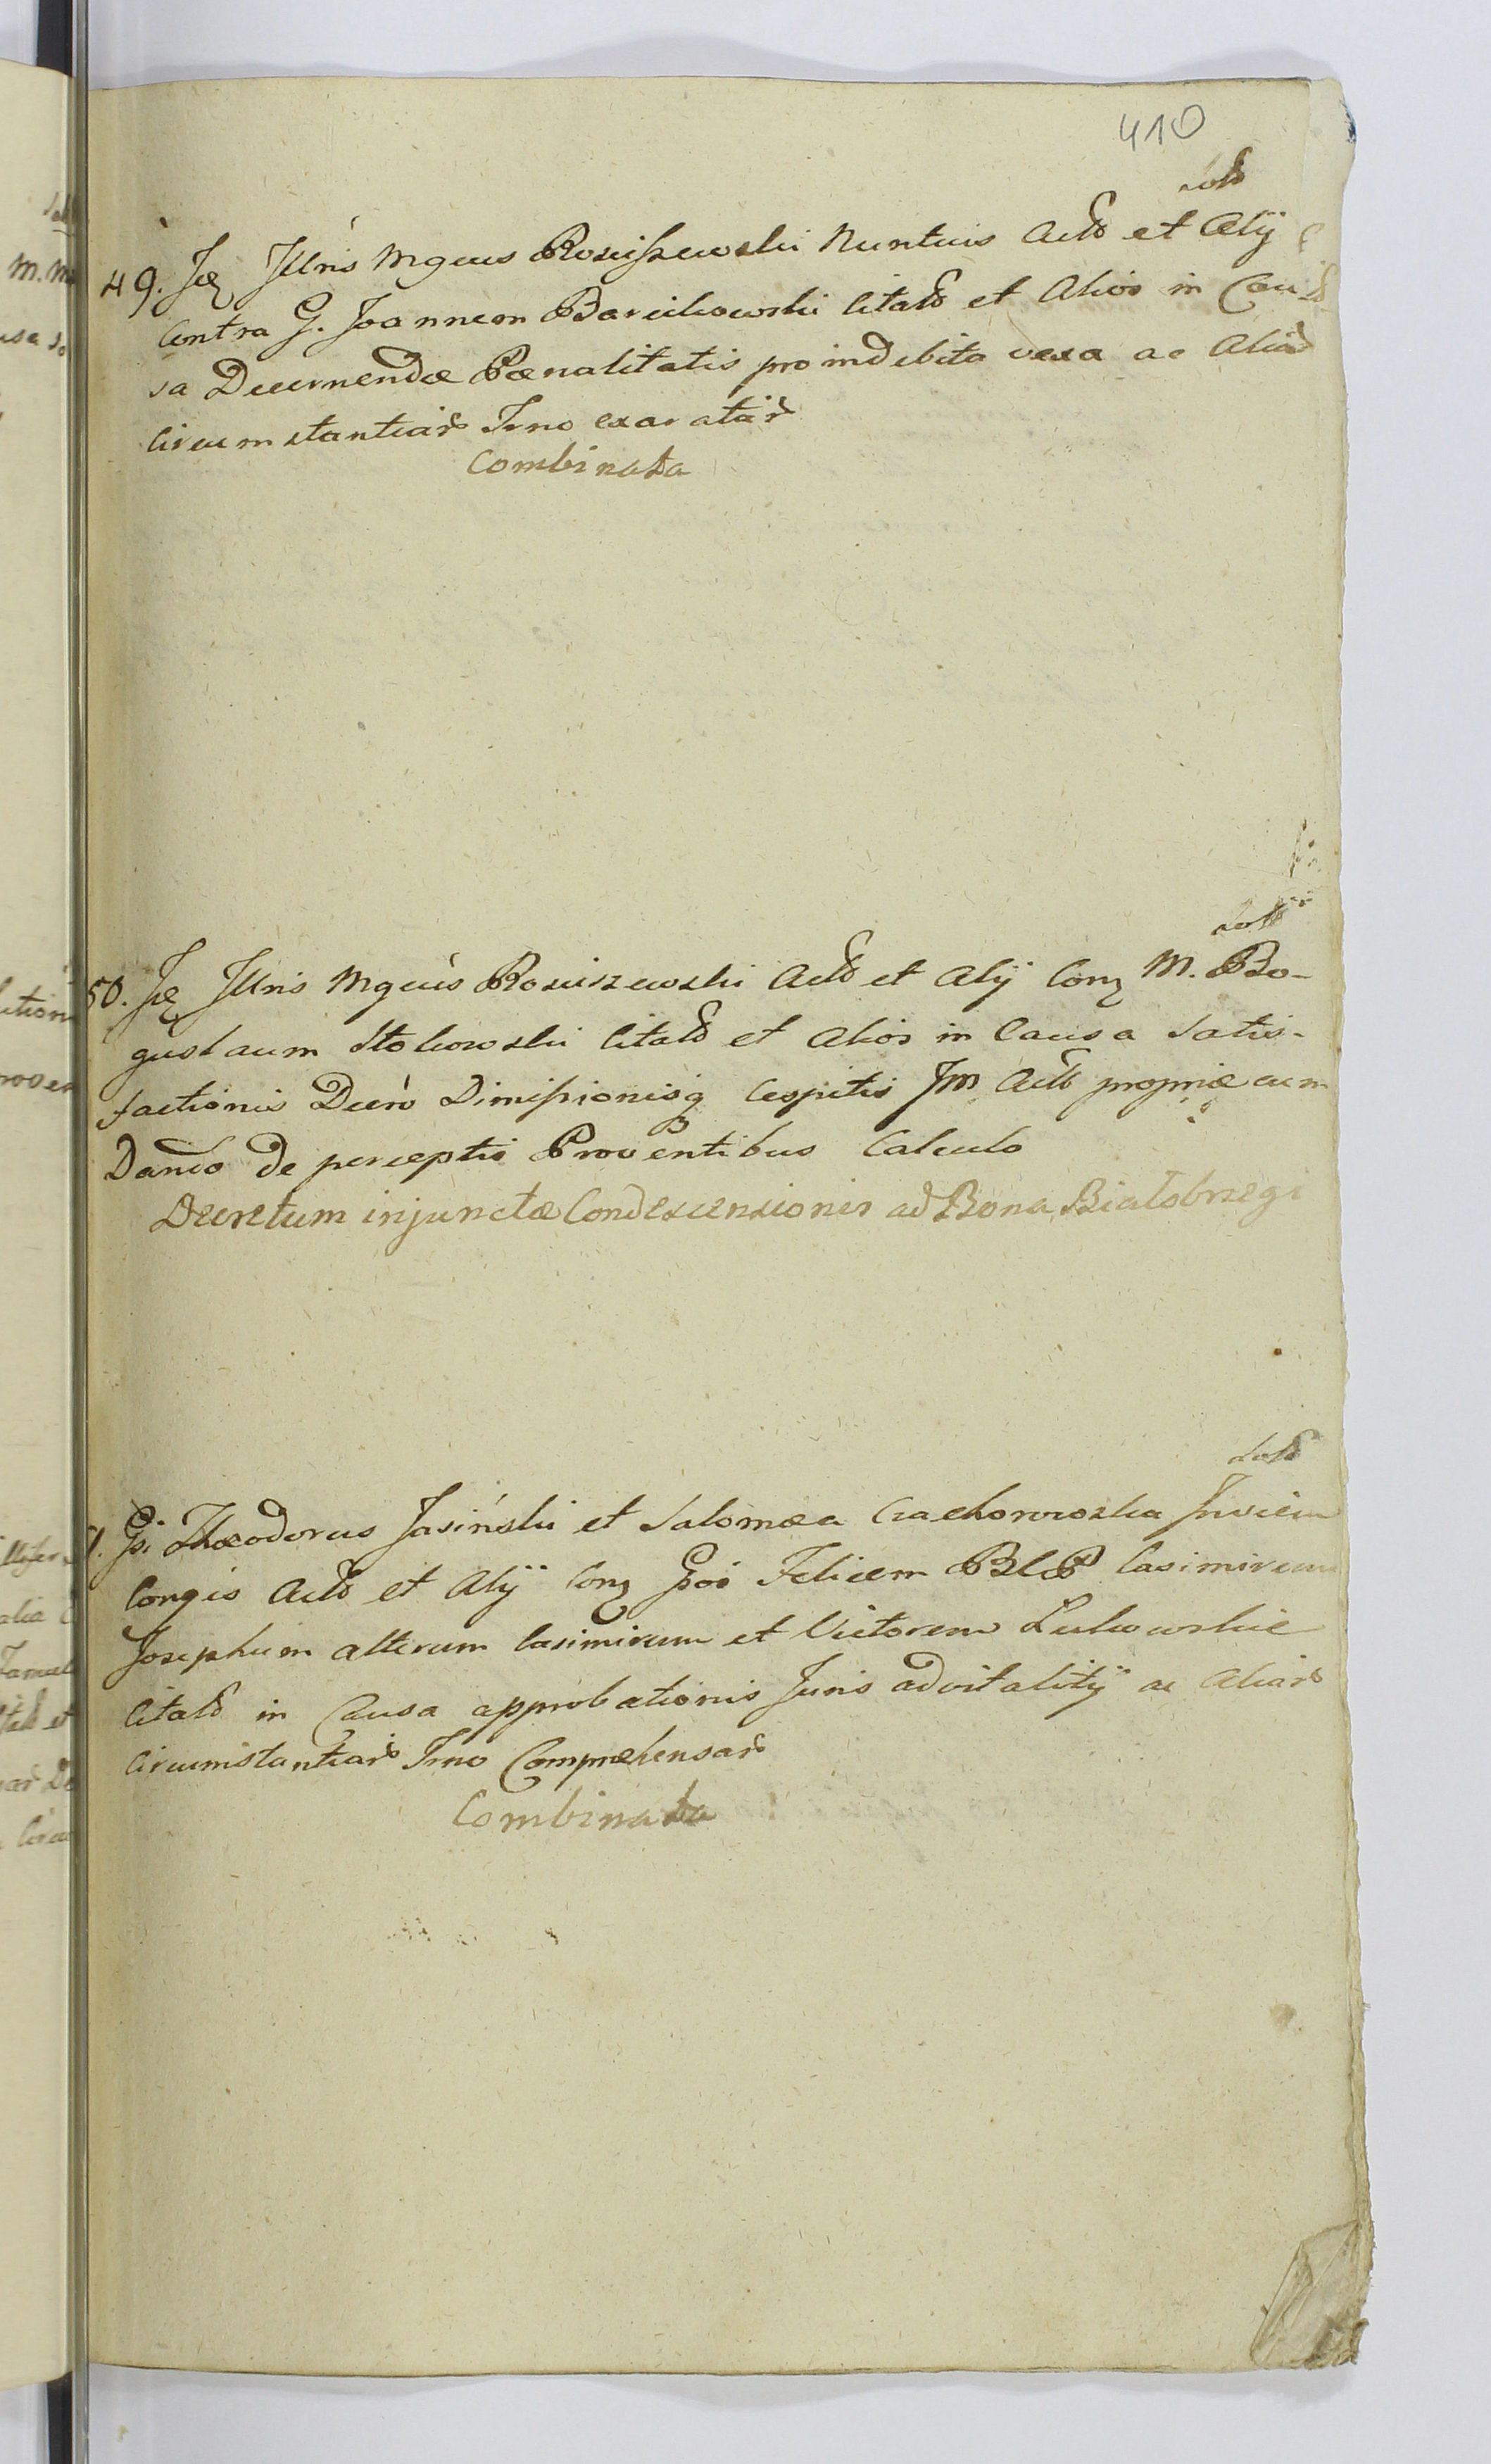 410
solt
49. Idem Illris Mgcus Rosciszewski Nuntius Actor et Alij
Contra G. Joannem Barcikowski Citat et Alios in Cau-
sa Decernendæ Pœnalitatis pro indebita vexa ac Aliar
Circumstantiar Trno exaratar
Combinata
solt
50. Idem Illris Mgcus Rosciszewski Actor et Alij Con M. Bo-
guslaum Stokowski Citat et Alios in Causa Satis-
factionis Decro Dimissionisq Cespitis Actor propriæ cum
Dando de perceptis Proventibus Calculo
Decretum injunctæ Condescensionis ad Bona Białobrzegi
solt
Gsi Theodorus Jasiński et Salomæa Czachorowska Invicem
Conges Actor et Alij Con Gsos Felicem Casimirum
Josephum alterum Casimirum et Victorem Lukowskie
Citat in Causa approbationis Juris advitalitij ac Aliar
Circumstantiar Trno Compræhensar
Combinata